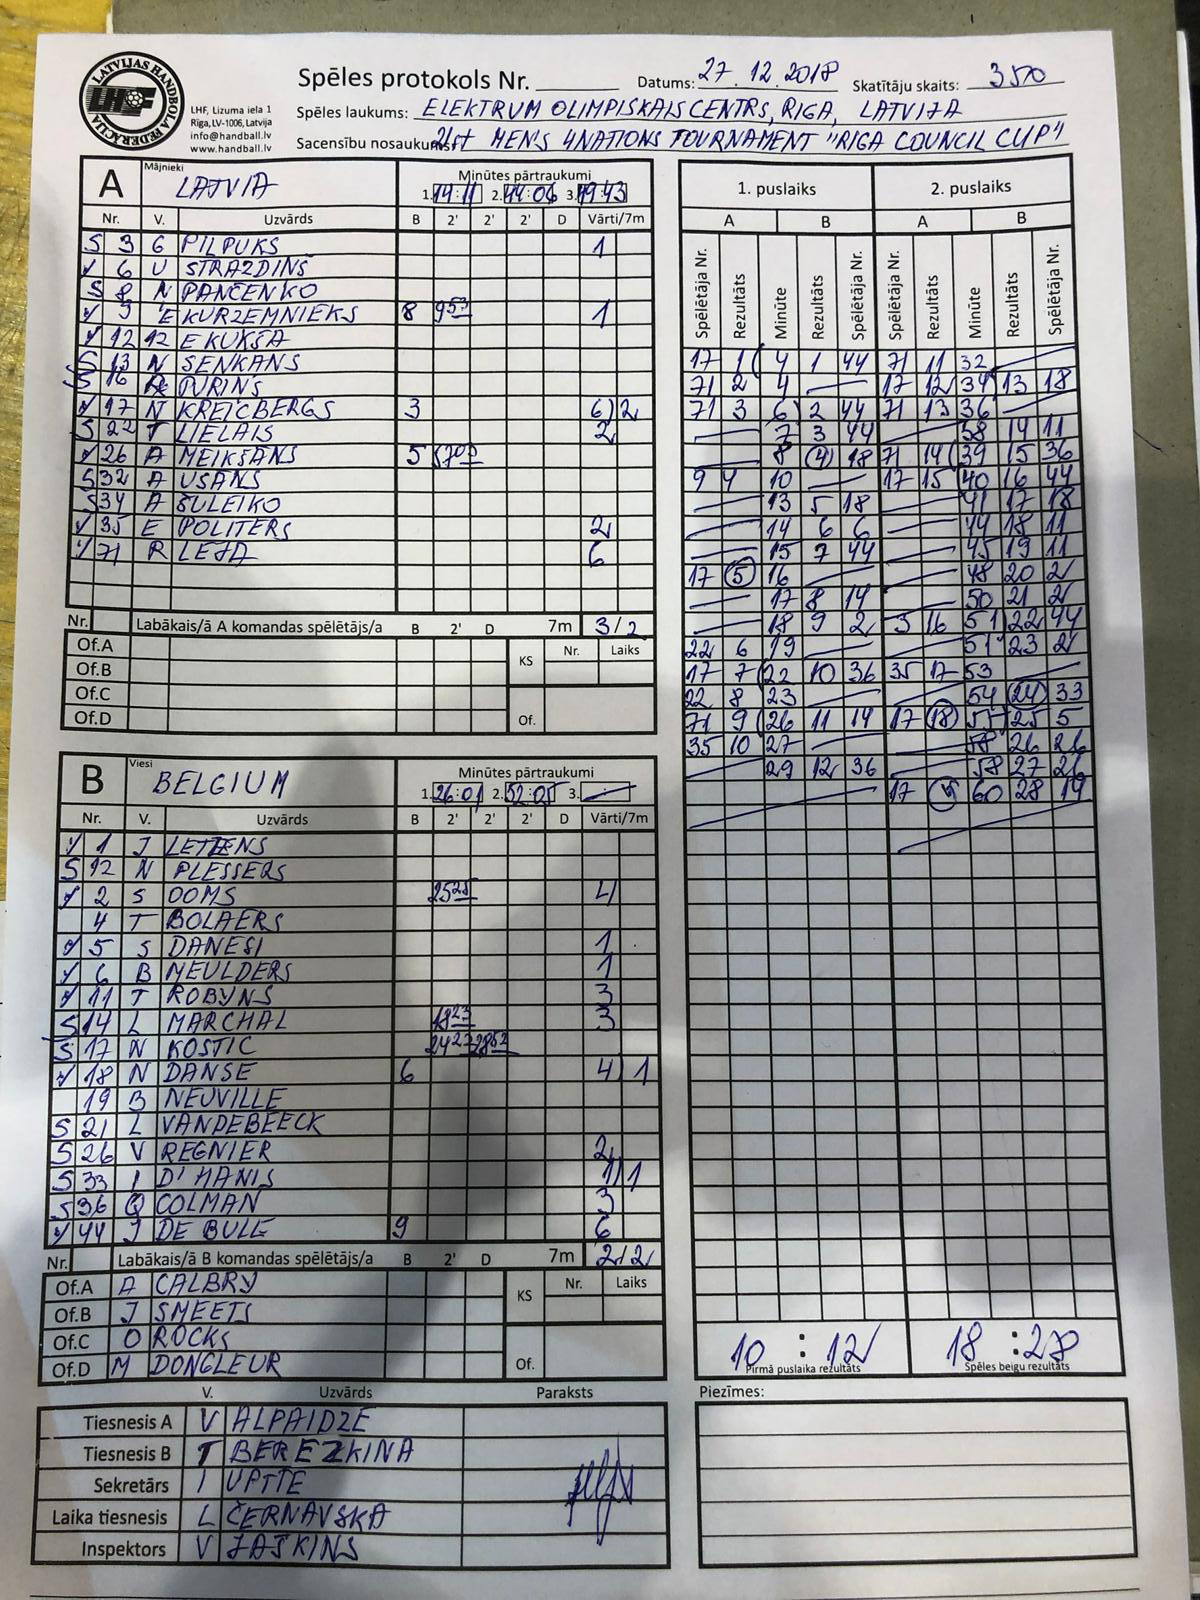 LATVIJAS HANDBOLA FEDERĀCIJA
LHF
LHF, Lizuma iela 1
Rīga, LV-1006, Latvija
info@handball.lv
www.handball.lv
Spēles protokols Nr.
Datums: 27.12.2018
Skatītāju skaits: 350
Spēles laukums: ELEKTRUM OLIMPISKAIS CENTRS, RIGA, LATVIJA
Sacensību nosaukums: 21st MEN'S 4NATIONS TOURNAMENT "RIGA COUNCIL CUP"
A Mājnieki LATVIA
Minūtes pārtraukumi
1. 14:11 2. 44:06 3. 49:43
Nr. V. Uzvārds B 2' 2' 2' D Vārti/7m
S 3 G PILPUKS 1
6 U STRAZDIŅŠ
S 8 N PANČENKO
9 E KURZEMNIEKS 8 9 53 1
12 E KUKŠA
S 13 N SENKĀNS
S 16 PURIŅŠ
17 N KREICBERGS 3 6 2
S 22 T LIELAIS 2
26 A MEIKŠĀNS 5
S 32 A USĀNS
S 34 A ŠULEIKO
35 E POLITERS 2
71 R LEJA 6
Nr. Labākais/ā A komandas spēlētājs/a B 2' D 7m 3/2
Of.A KS Nr. Laiks
Of.B
Of.C
Of.D Of.
B Viesi BELGIUM
Minūtes pārtraukumi
1. 26:01 2. 52:05 3.
Nr. V. Uzvārds B 2' 2' 2' D Vārti/7m
1 J LETTENS
S 12 N PLESSERS
2 S OOMS 25 25 4
4 T BOLAERS
5 S DANESI 1
6 B MEULDERS 1
11 T ROBYNS 3
S 14 L MARCHAL 18 23 3
S 17 N KOSTIC 24 27 28 52
18 N DANSE 6 4 1
19 B NEUVILLE
S 21 L VANDEBEECK
S 26 V REGNIER 2
S 33 I D'HANIS 1 1
S 36 Q COLMAN 3
44 J DE BULE 9 6
Nr. Labākais/ā B komandas spēlētājs/a B 2' D 7m 2/2
Of.A A CALBRY KS Nr. Laiks
Of.B J SMEETS
Of.C O ROCKS
Of.D M DONGLEUR Of.
V. Uzvārds Paraksts
Tiesnesis A V ALPAIDZE
Tiesnesis B T BEREZKINA
Sekretārs I UPĪTE
Laika tiesnesis L ČERNAVSKA
Inspektors V JAŠKINS
1. puslaiks 2. puslaiks
A B A B
Spēlētāja Nr. Rezultāts Minūte Rezultāts Spēlētāja Nr. Spēlētāja Nr. Rezultāts Minūte Rezultāts Spēlētāja Nr.
17 1 4 1 44 71 11 32
71 2 4 17 12 34 13 18
71 3 6 2 44 71 13 36
7 3 44 38 14 11
8 4 18 71 14 39 15 36
9 4 10 17 15 40 16 44
13 5 18 41 17 18
14 6 6 44 18 11
15 7 44 45 19 11
17 5 16 48 20 2
17 8 14 50 21 2
18 9 2 3 16 51 22 44
22 6 19 51 23 2
17 7 22 10 36 35 17 53
22 8 23 54 24 33
71 9 26 11 14 17 18 55 25 5
35 10 27 58 26 26
29 12 36 58 27 26
17 60 28 14
10 : 12 18 : 28
Pirmā puslaika rezultāts Spēles beigu rezultāts
Piezīmes: